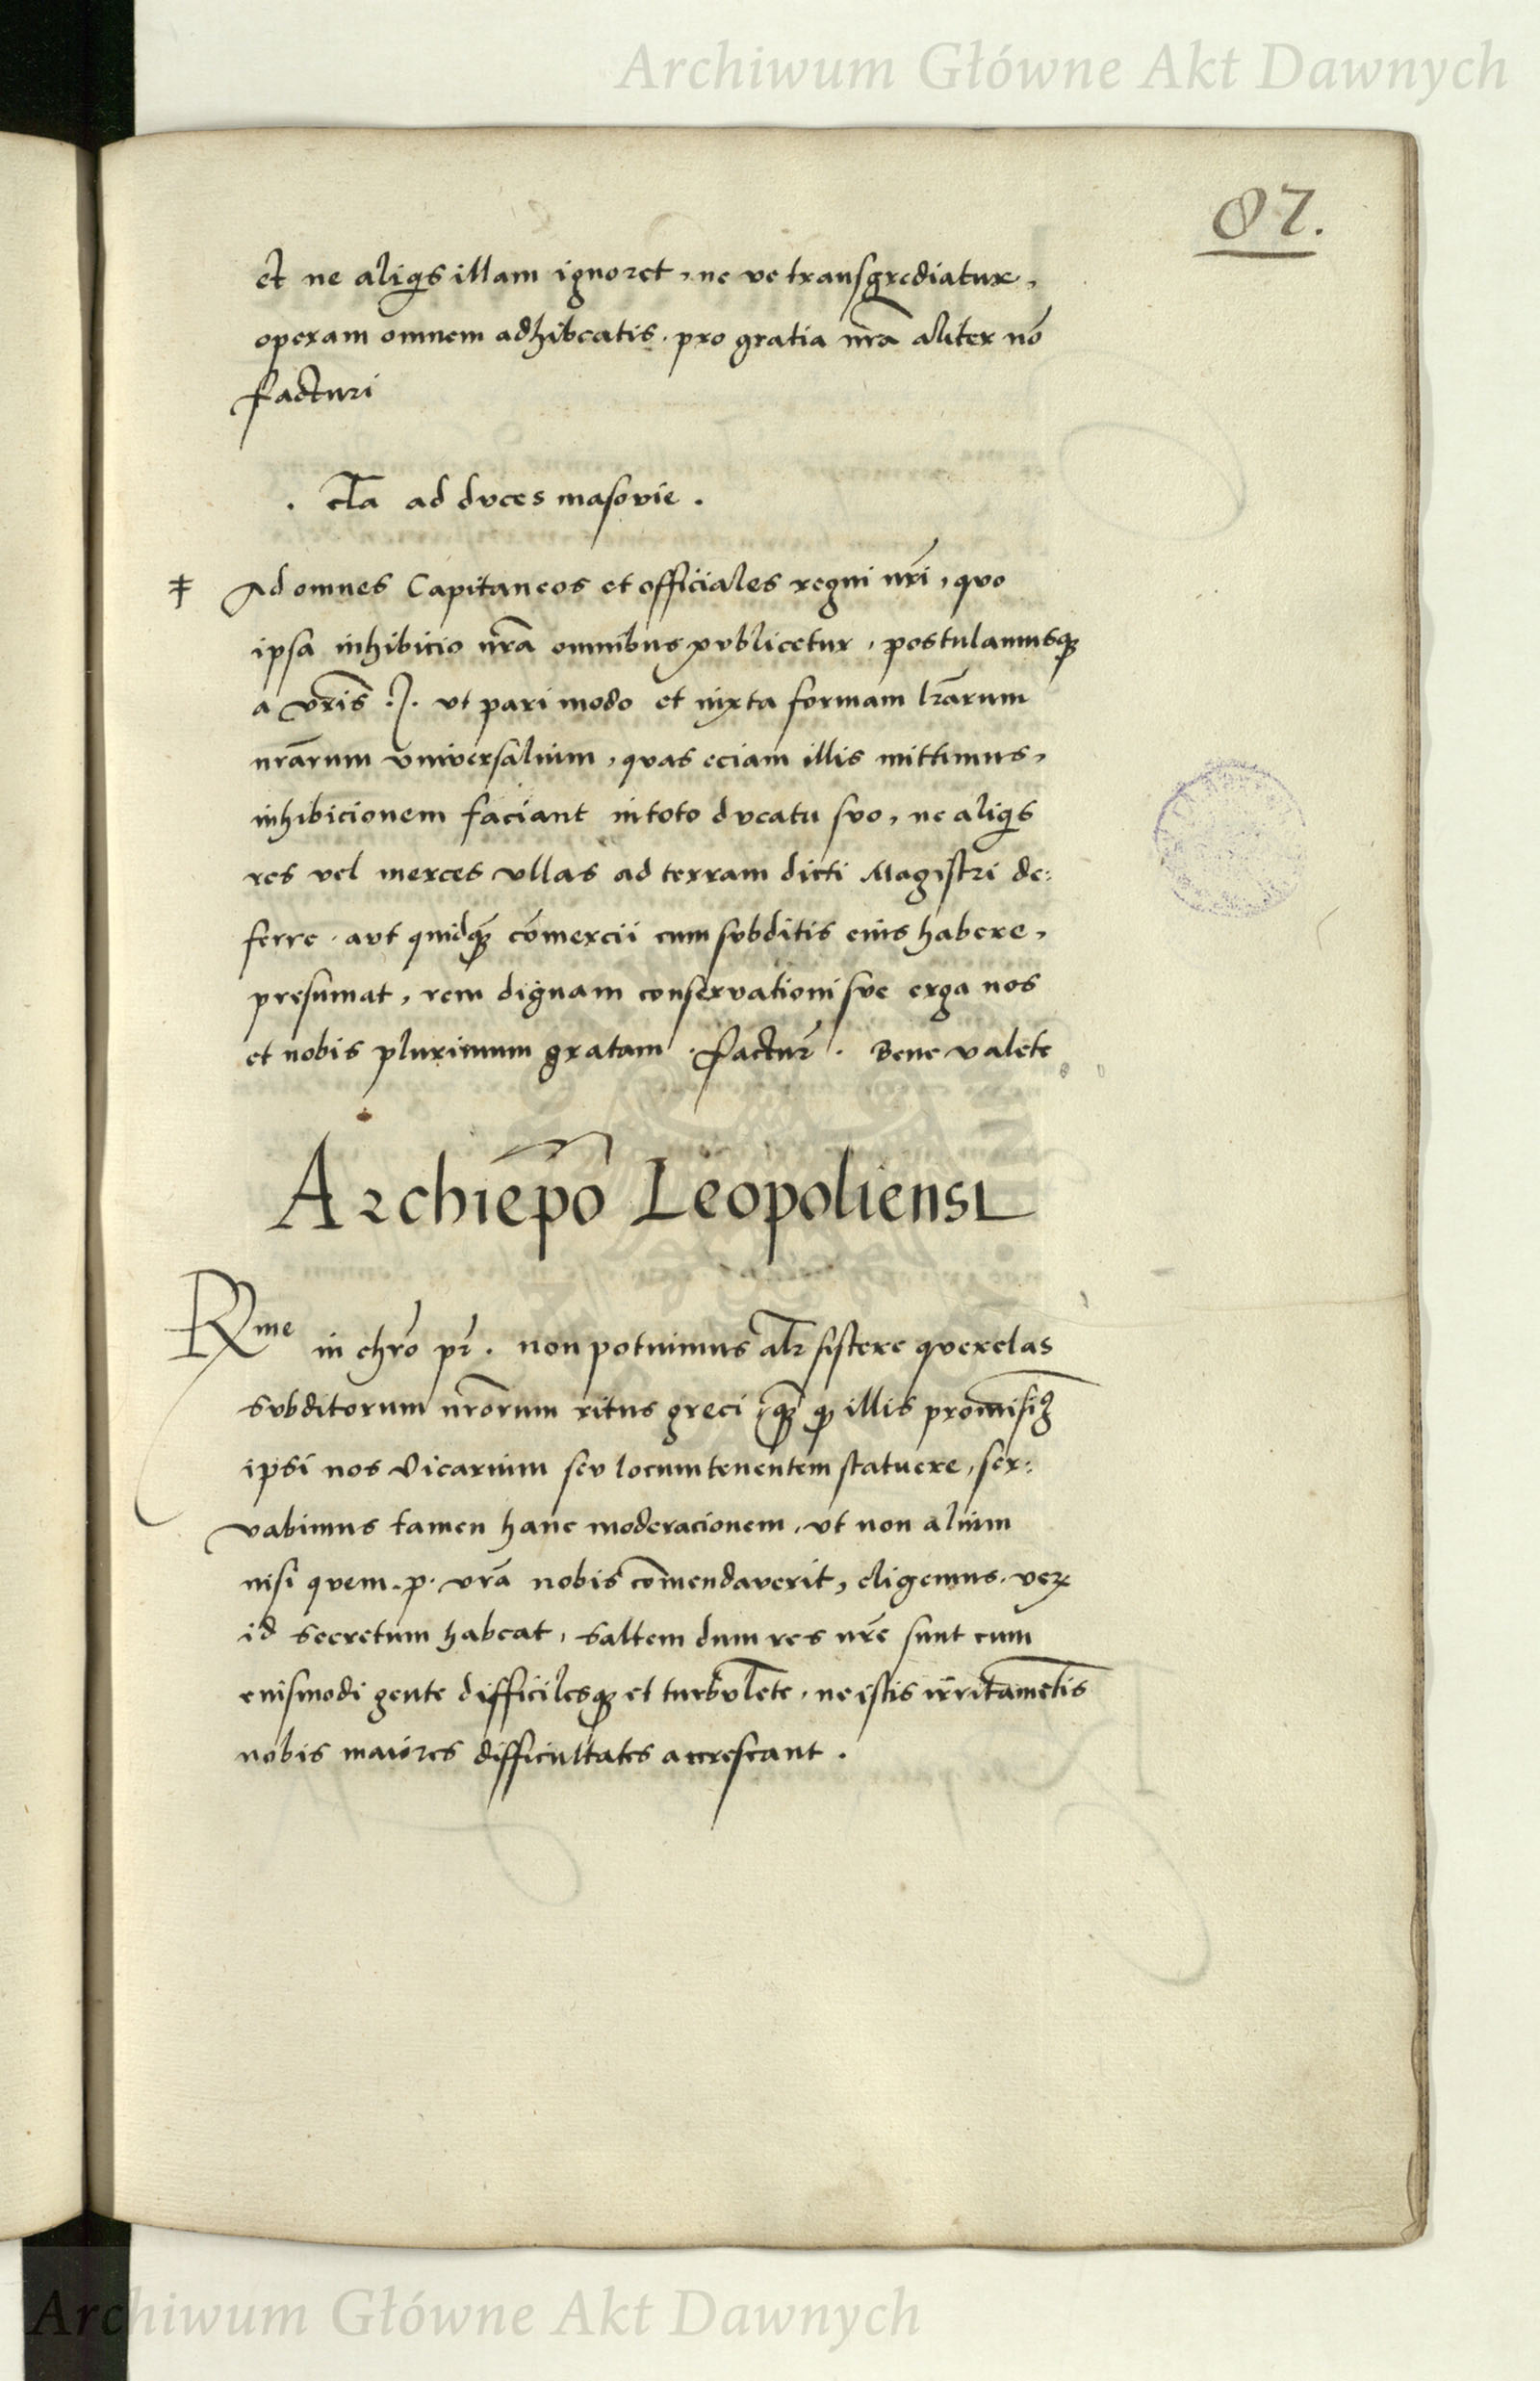 Archiwum Główne Akt Dawnych
87.
et ne aliq̃s illam ignoret, ne ve transgrediatur,
operam omnem adhibeatis. pro gratia nr̃a aliter nõ
facturi
. cl̃a ad duces masovie .
‡ Ad omnes Capitaneos et officiales regni nr̃i, quo
ipsa inhibicio nr̃a omnibus publicetur, postulamusqꝫ
a vr̃is .J. ut pari modo et iuxta formam lr̃arum
nr̃arum universalium, quas eciam illis mittimus,
inhibicionem faciant in toto ducatu suo, ne aliq̃s
res vel merces ullas ad terram dicti Magistri de:
ferre. aut quidqꝫ cõmercii cum subditis eius habere,
presumat, rem dignam conservationi sue erga nos
et nobis plurimum gratam. factur̃. Bene valete
Archiep̃o Leopoliensi
Rme in chr̃o pr̃. non potuimus alr̃ sistere querelas
subditorum nr̃orum ritus greci, qꝫ ꝙ illis promisiꝫ
ipsi nos Vicarium seu locumtenentem statuere, ser:
vabimus tamen hanc moderacionem, ut non alium
nisi quem. p. vr̃a nobis com̃endaverit, eligemus. verꝝ
id secretum habeat, saltem dum res nr̃e sunt cum
eiusmodi gente difficilesqꝫ et turbul̃ete, ne istis irritamẽtis
nobis maiores difficultates accrescant.
Archiwum Główne Akt Dawnych